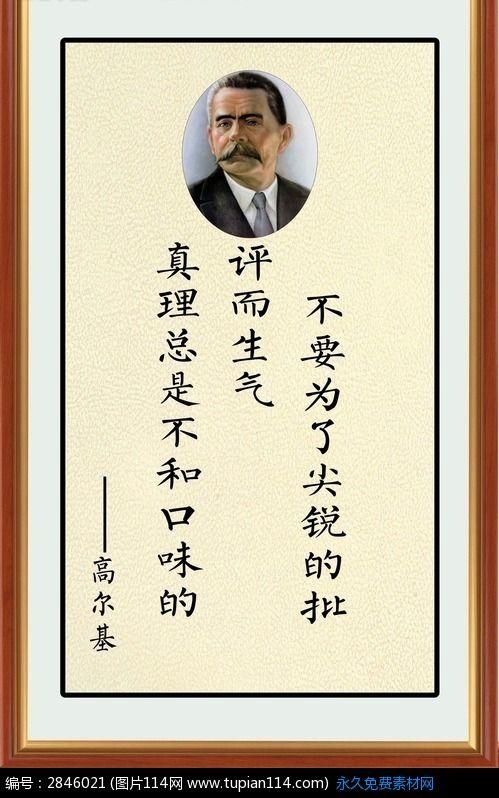 不要为了尖锐的批
评而生气
真理总是不和口味的
——高尔基
编号：2846021 (图片114网 www.tupian114.com) 永久免费素材网